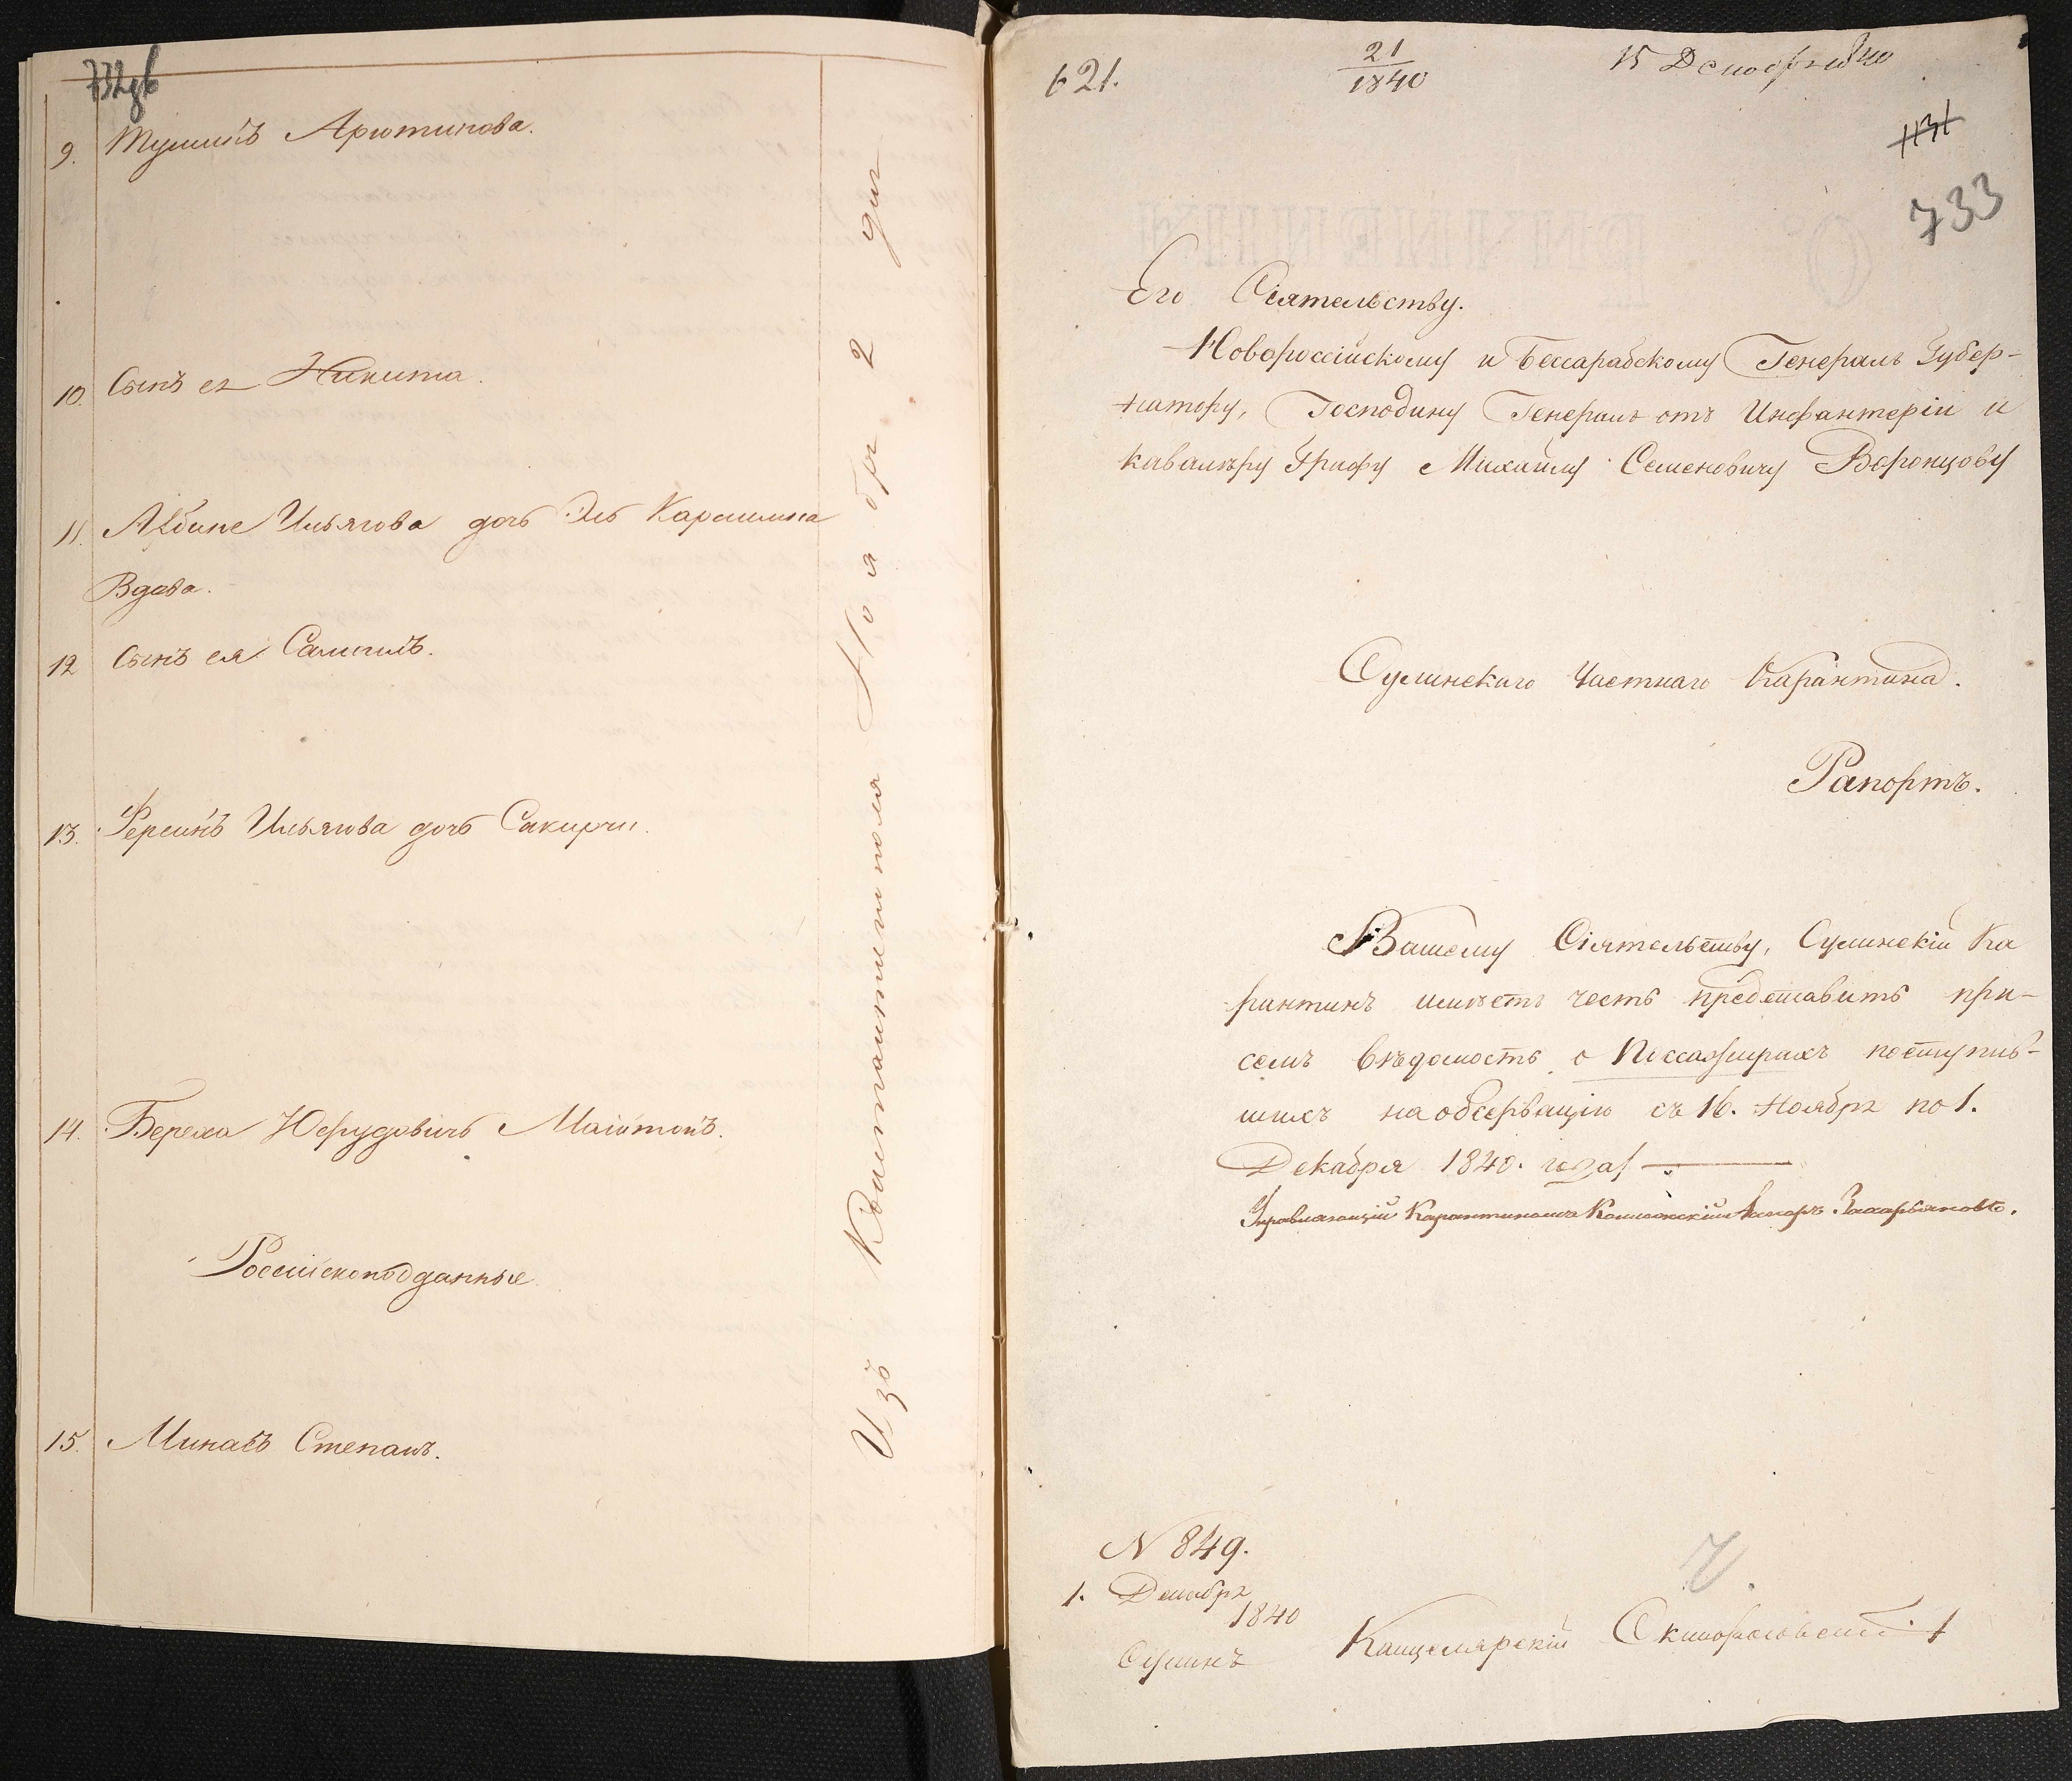 732об
9. Тушинъ Арютинова.
10. Сынъ ея Никита.
11. Албине Ильягова дочь Эль
Вдова.
12 Сынъ ея
13. Ильягова дочь Сакирчи.
14. Береха
Россійскоподданные
15. Минасъ Степанъ.
Изъ Константинополя Ноября 2 дня
621.
21
1840
15 Декабря 1840
1131
733
Его Сіятельству.
Новороссійскому и Бессарабскому Генералъ Губер-
натору, Господину Генералъ отъ Инфантеріи и
кавалеру Графу Михаилу Семеновичу Воронцову
Сулинскаго Частнаго Карантина.
Рапортъ.
Вашему Сіятельству, Сулинскій Ка
рантинъ имѣетъ честь представить при-
семъ вѣдомость о Пассажирахъ поступив-
шихъ на обсервацію съ 16. Ноября по 1.
Декабря 1840. года
Управляющій Карантиномъ
N 849.
1. Декабря
1840
Сулинъ
Канцелярскій